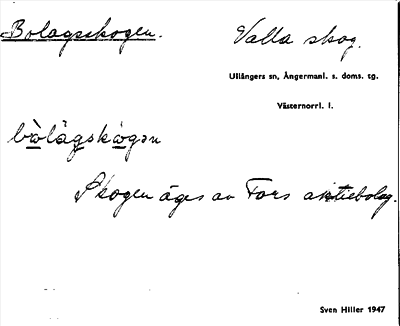 Bolagsskogen.
Valla skog.
Ullångers sn, Ångermanl. s. doms. tg.
Västernorrl. l.
bòlàgskògən
Skogen äges av Fors aktiebolag.
Sven Hiller 1947